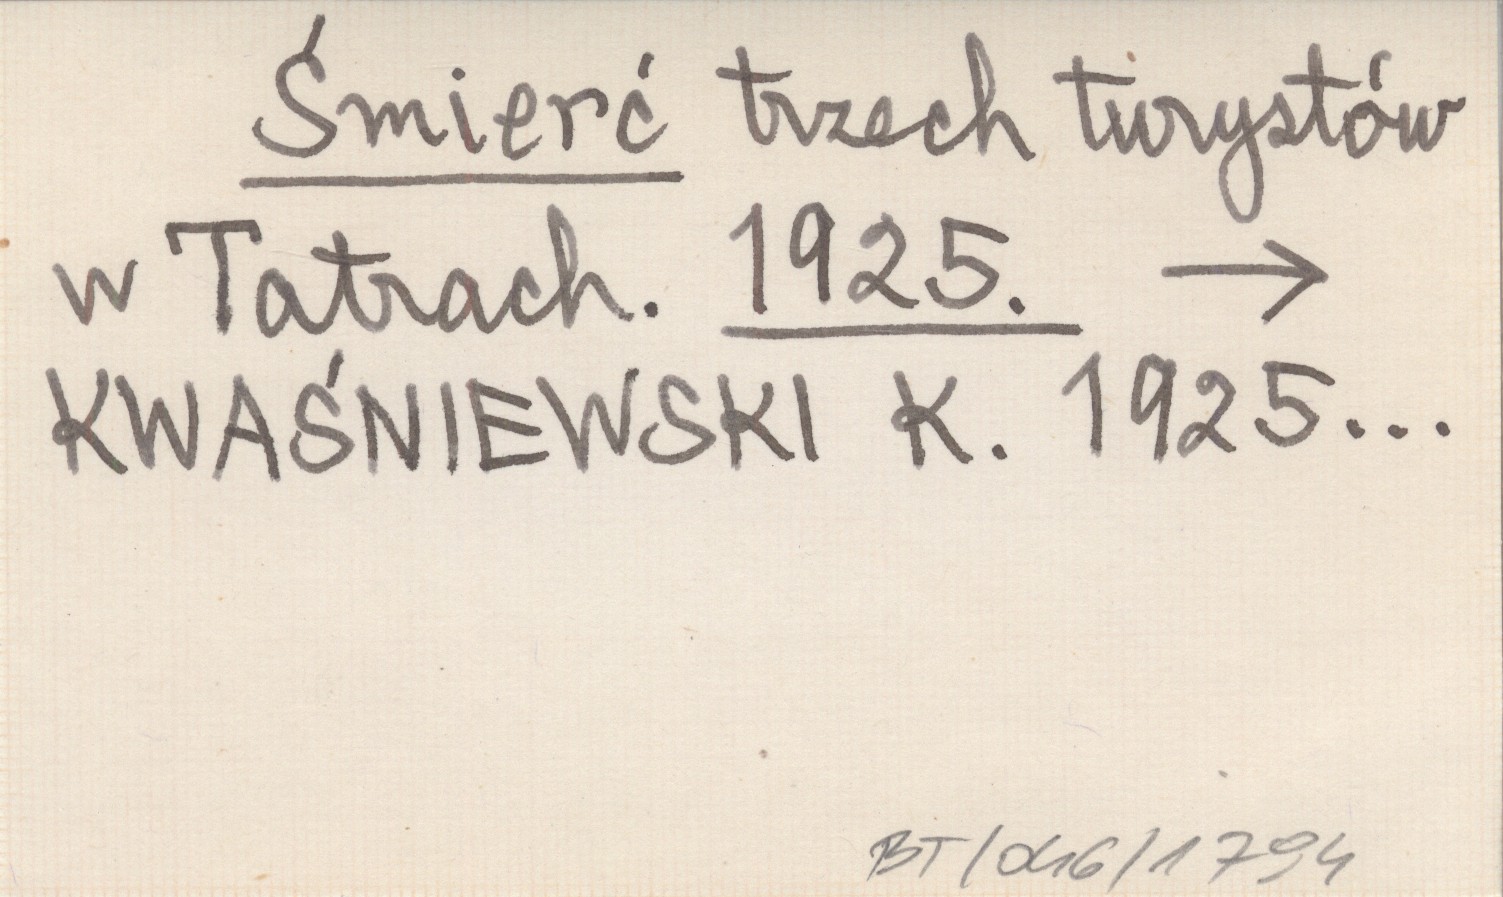 Śmierć trzech turystów
w Tatrach. 1925. →
KWAŚNIEWSKI K. 1925...
BT/046/1794